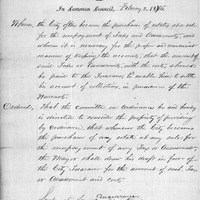 In Common Council, February 3, 1845.
Whereas, the City often become the purchaser of estates at sales
for the nonpayment of Taxes and Assessments, and
whereas it is necessary for the proper and convenient
manner of keeping the accounts, that the amount of
said Taxes or Assessments, with the costs, should
be paid to the Treasurer to enable him to settle
his account of collections, in pursuance of the
Warrants.
Ordered, That the Committee on Ordinances be and hereby
is directed to consider the propriety of providing
by Ordinance, that whenever the City becomes
the purchaser of any estate at any sale for
the nonpayment of any Tax or Assessment,
the Mayor shall draw his draft in favor of
the City Treasurer for the amount of such Tax
or Assessment and costs